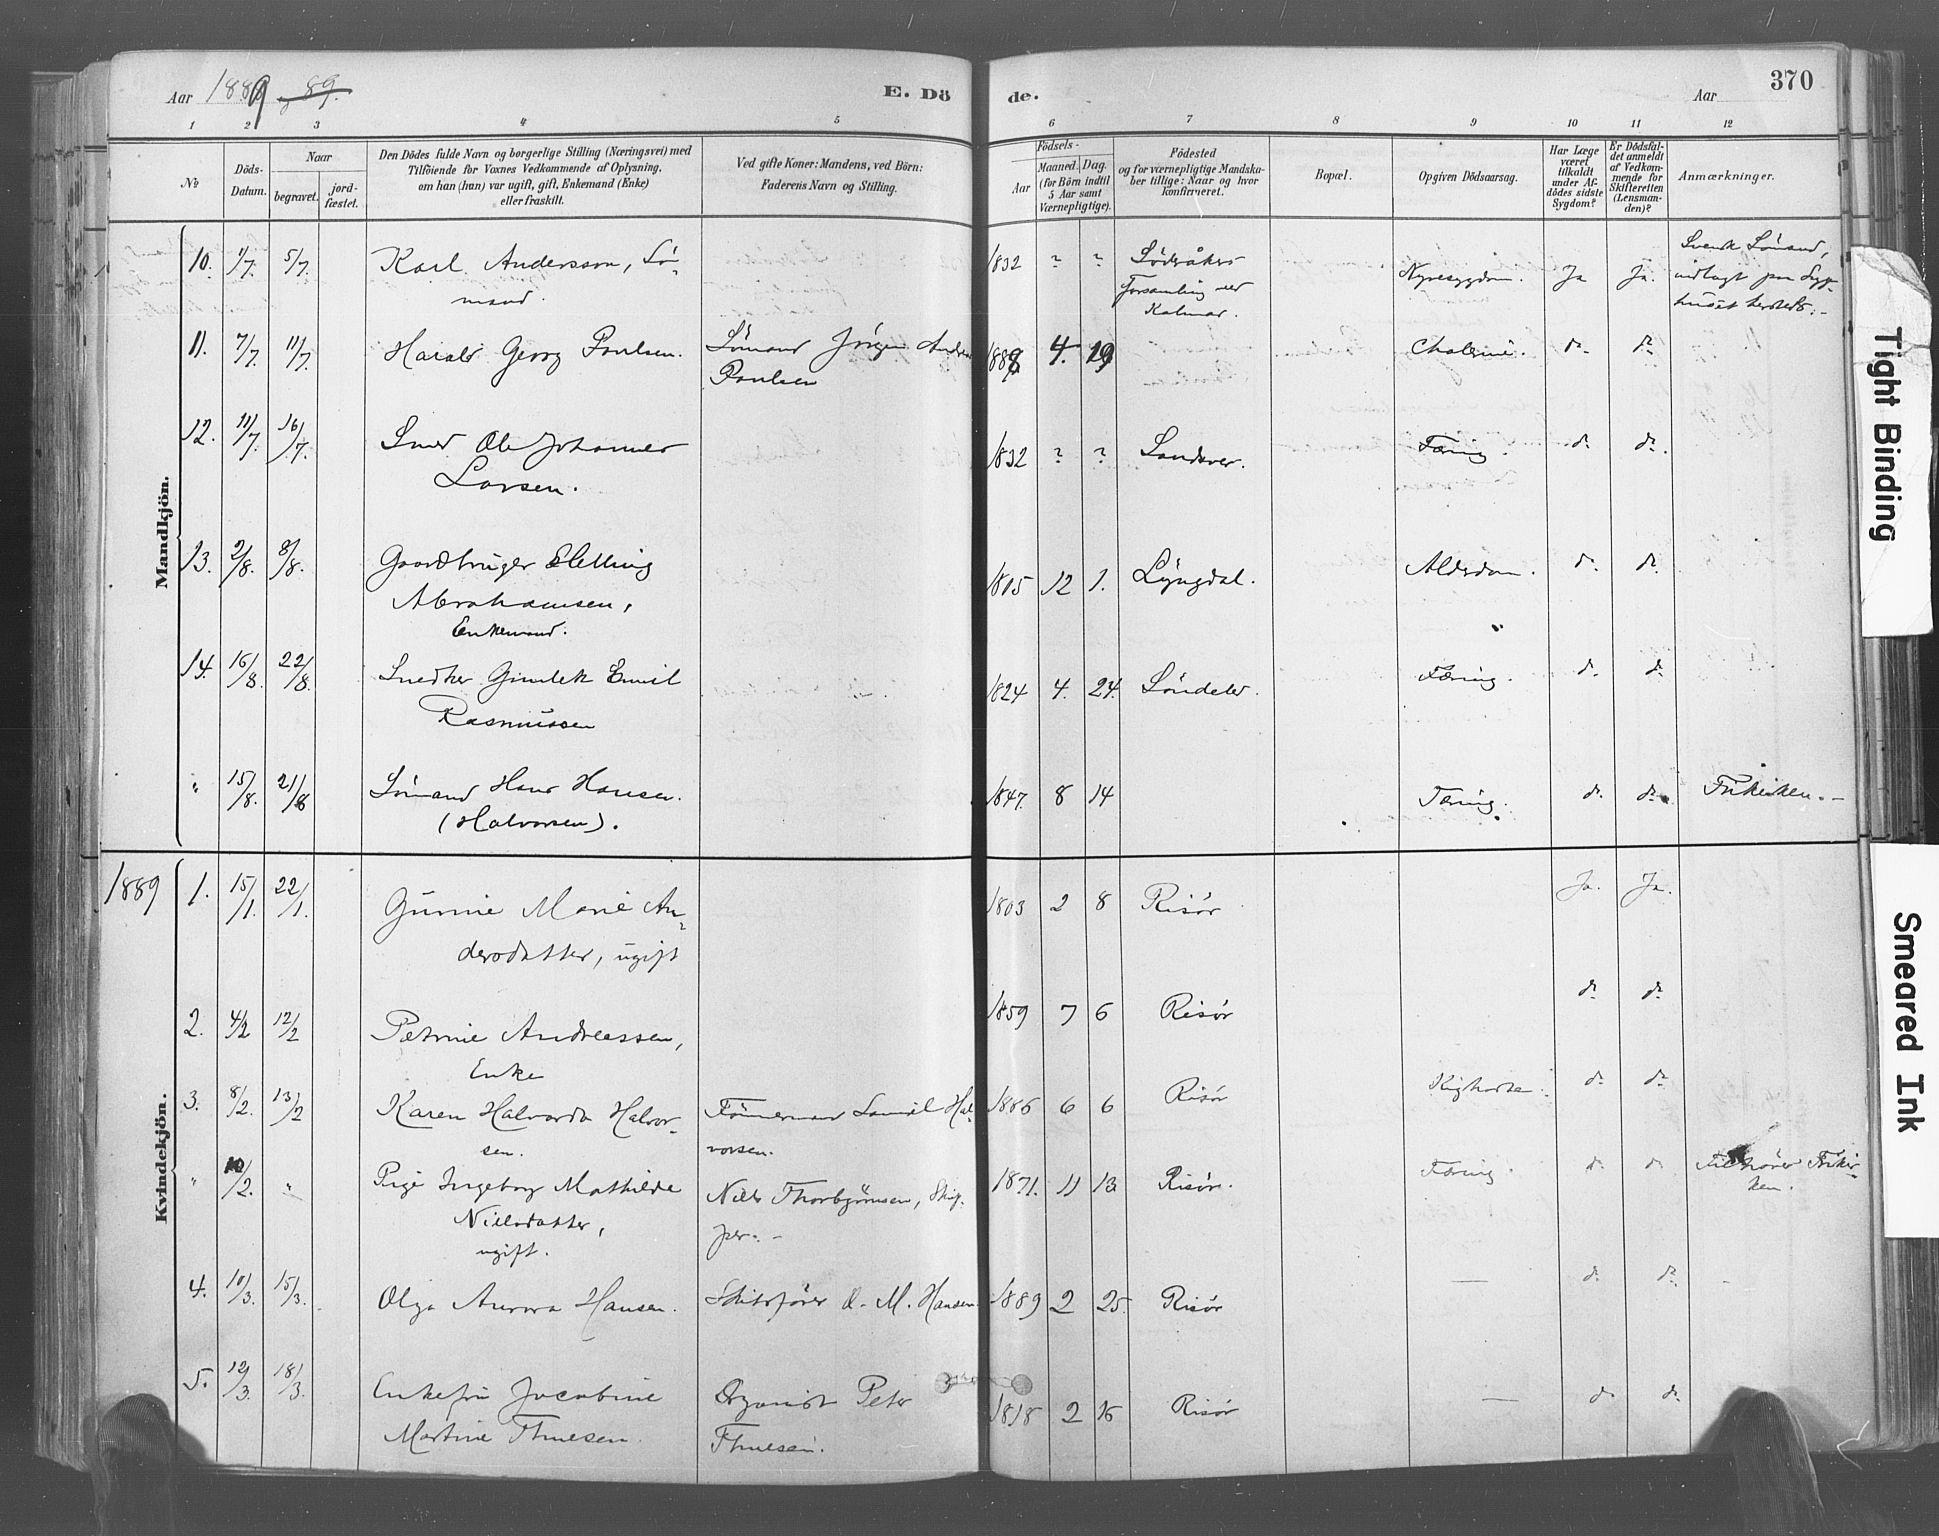 Aar 1889 89.
E. Dö de.
Aar
370
1 2 3 4 5 6 7 8 9 10 11 12
No
Döds-Datum.
Naar
begravet.
jord-fæstet.
Den Dödes fulde Navn og borgerlige Stilling (Næringsvei) med
Tilföiende for Voxnes Vedkommende af Oplysning,
om han (hun) var ugift, gift, Enkemand (Enke)
eller fraskilt.
Ved gifte Koner: Mandens, ved Börn:
Faderens Navn og Stilling.
Födsels-
Aar
Maaned. Dag.
(for Börn indtil
5 Aar samt
Værnepligtige).
Födested
og for værnepligtige Mandska-
ber tillige: Naar og hvor
konfirmeret.
Bopæl.
Opgiven Dödsaarsag.
Har Læge
været
tilkaldt
under Af-
dödes sidste
Sygdom?
Er Dödsfal-
det anmeldt
af Vedkom-
mende for
Skifteretten
(Lensman-
den)?
Anmærkninger.
Mandkjön.
10. 1/7. 5/7. Karl Andersson, Sö-
mand.
1832 ? ?
Forsamling ved
Kalmar.
Nyresygdom. Ja Ja.
Svensk Sömand,
indlagt paa Syge-
huset hersteds.-
11. 7/7. 11/7. Harald Georg Poulsen. Sömand Jörgen Andreas
Poulsen
188 4. 19 Cholerine. do. do.
12. 11/7. 16/7. Smed Ole Johannes
Larsen.
1832 ? ? Sandsver. Tæring. do. do.
13. 2/8. 8/8. Gaardbruger Elling
Abrahamsen,
Enkemand.
1805 12 1. Lyngdal. Alderdom. do. do.
14. 16/8. 22/8. Snedker Emil
Rasmussen
1824 4. 24. Söndeled. Tæring. do. do.
" 15/8. 21/8 Sömand Hans Hansen.
(Halvorsen).
1847. 8 14 Tæring. do. do. Frikirken.-
1889
Kvindekjön.
1. 15/1. 22/1. Gunnie Marie An-
dersdatter, ugift
1803 2 8 Risör Ja. Ja.
2. 4/2 12/2 Petrine Andreassen,
Enke
1859 7 6 Risör do. do.
3. 8/2. 13/2 Karen Halvarda Halvor-
sen.
Tömmermand Samuel Hal-
vorsen.
1886 6 6 Risör Kighoste. do. do.
" 10/2. " Pige Ingeborg Mathilde
Nielsdatter,
ugift.
Niels Thorbjörnsen, Skip-
per.-
1871. 11 13 Risör. Tæring. do. do. Tilhörer Frikir-
ken.
4. 10/3. 15/3. Olga Aurora Hansen. Skibsförer O. M. Hansen.
1889 2 25. Risör — do. do.
5. 12/3. 18/3. Enkefru Jacobine
Martine Thuesen.
Organist Peter
Thuesen.
1818 2 16 Risör — do. do.
Tight Binding
Smeared Ink